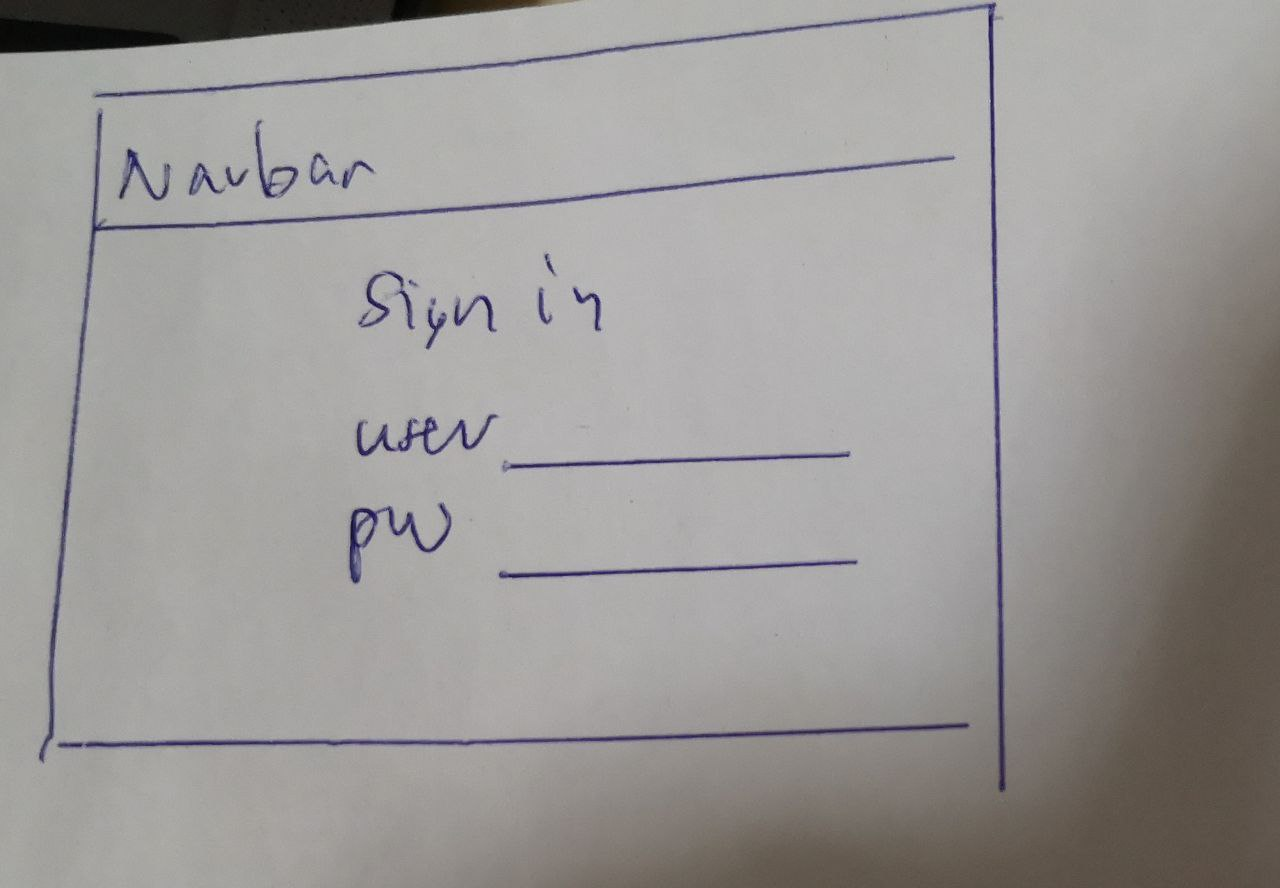 Navbar
Sign in
user
pw